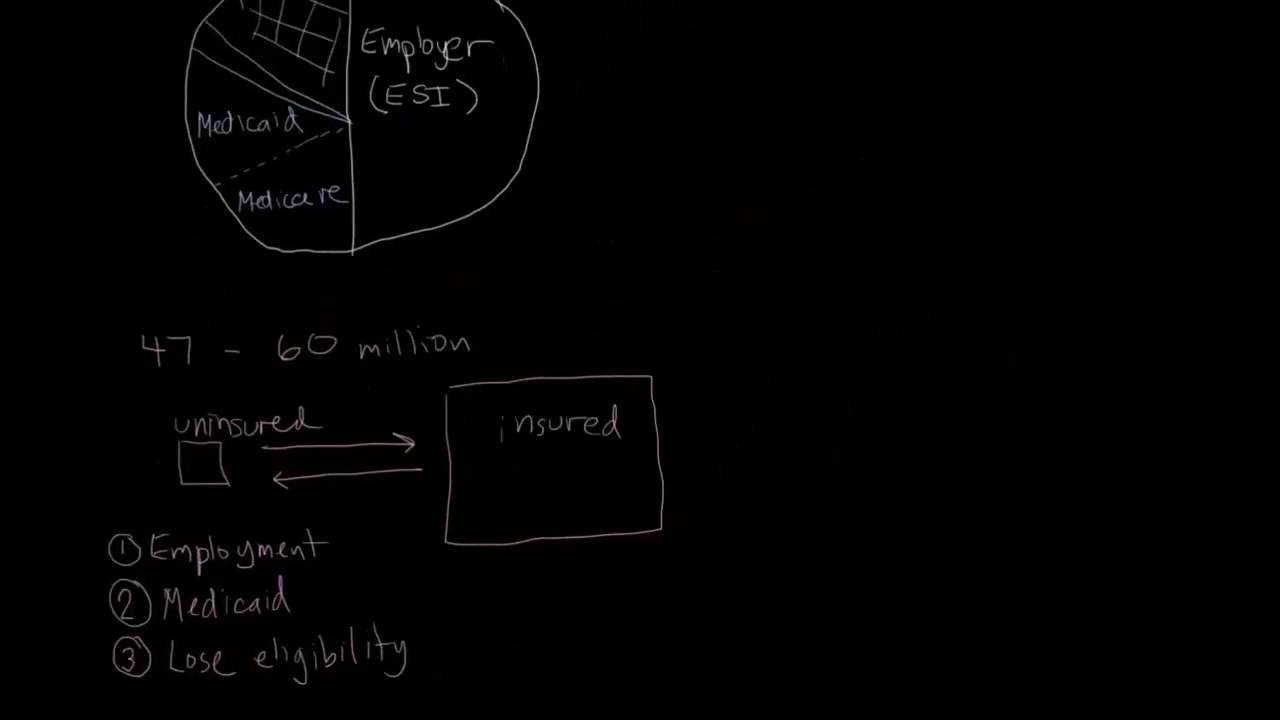 Employer
(ESI)
Medicaid
Medicare
47 - 60 million
uninsured
insured
① Employment
② Medicaid
③ Lose eligibility